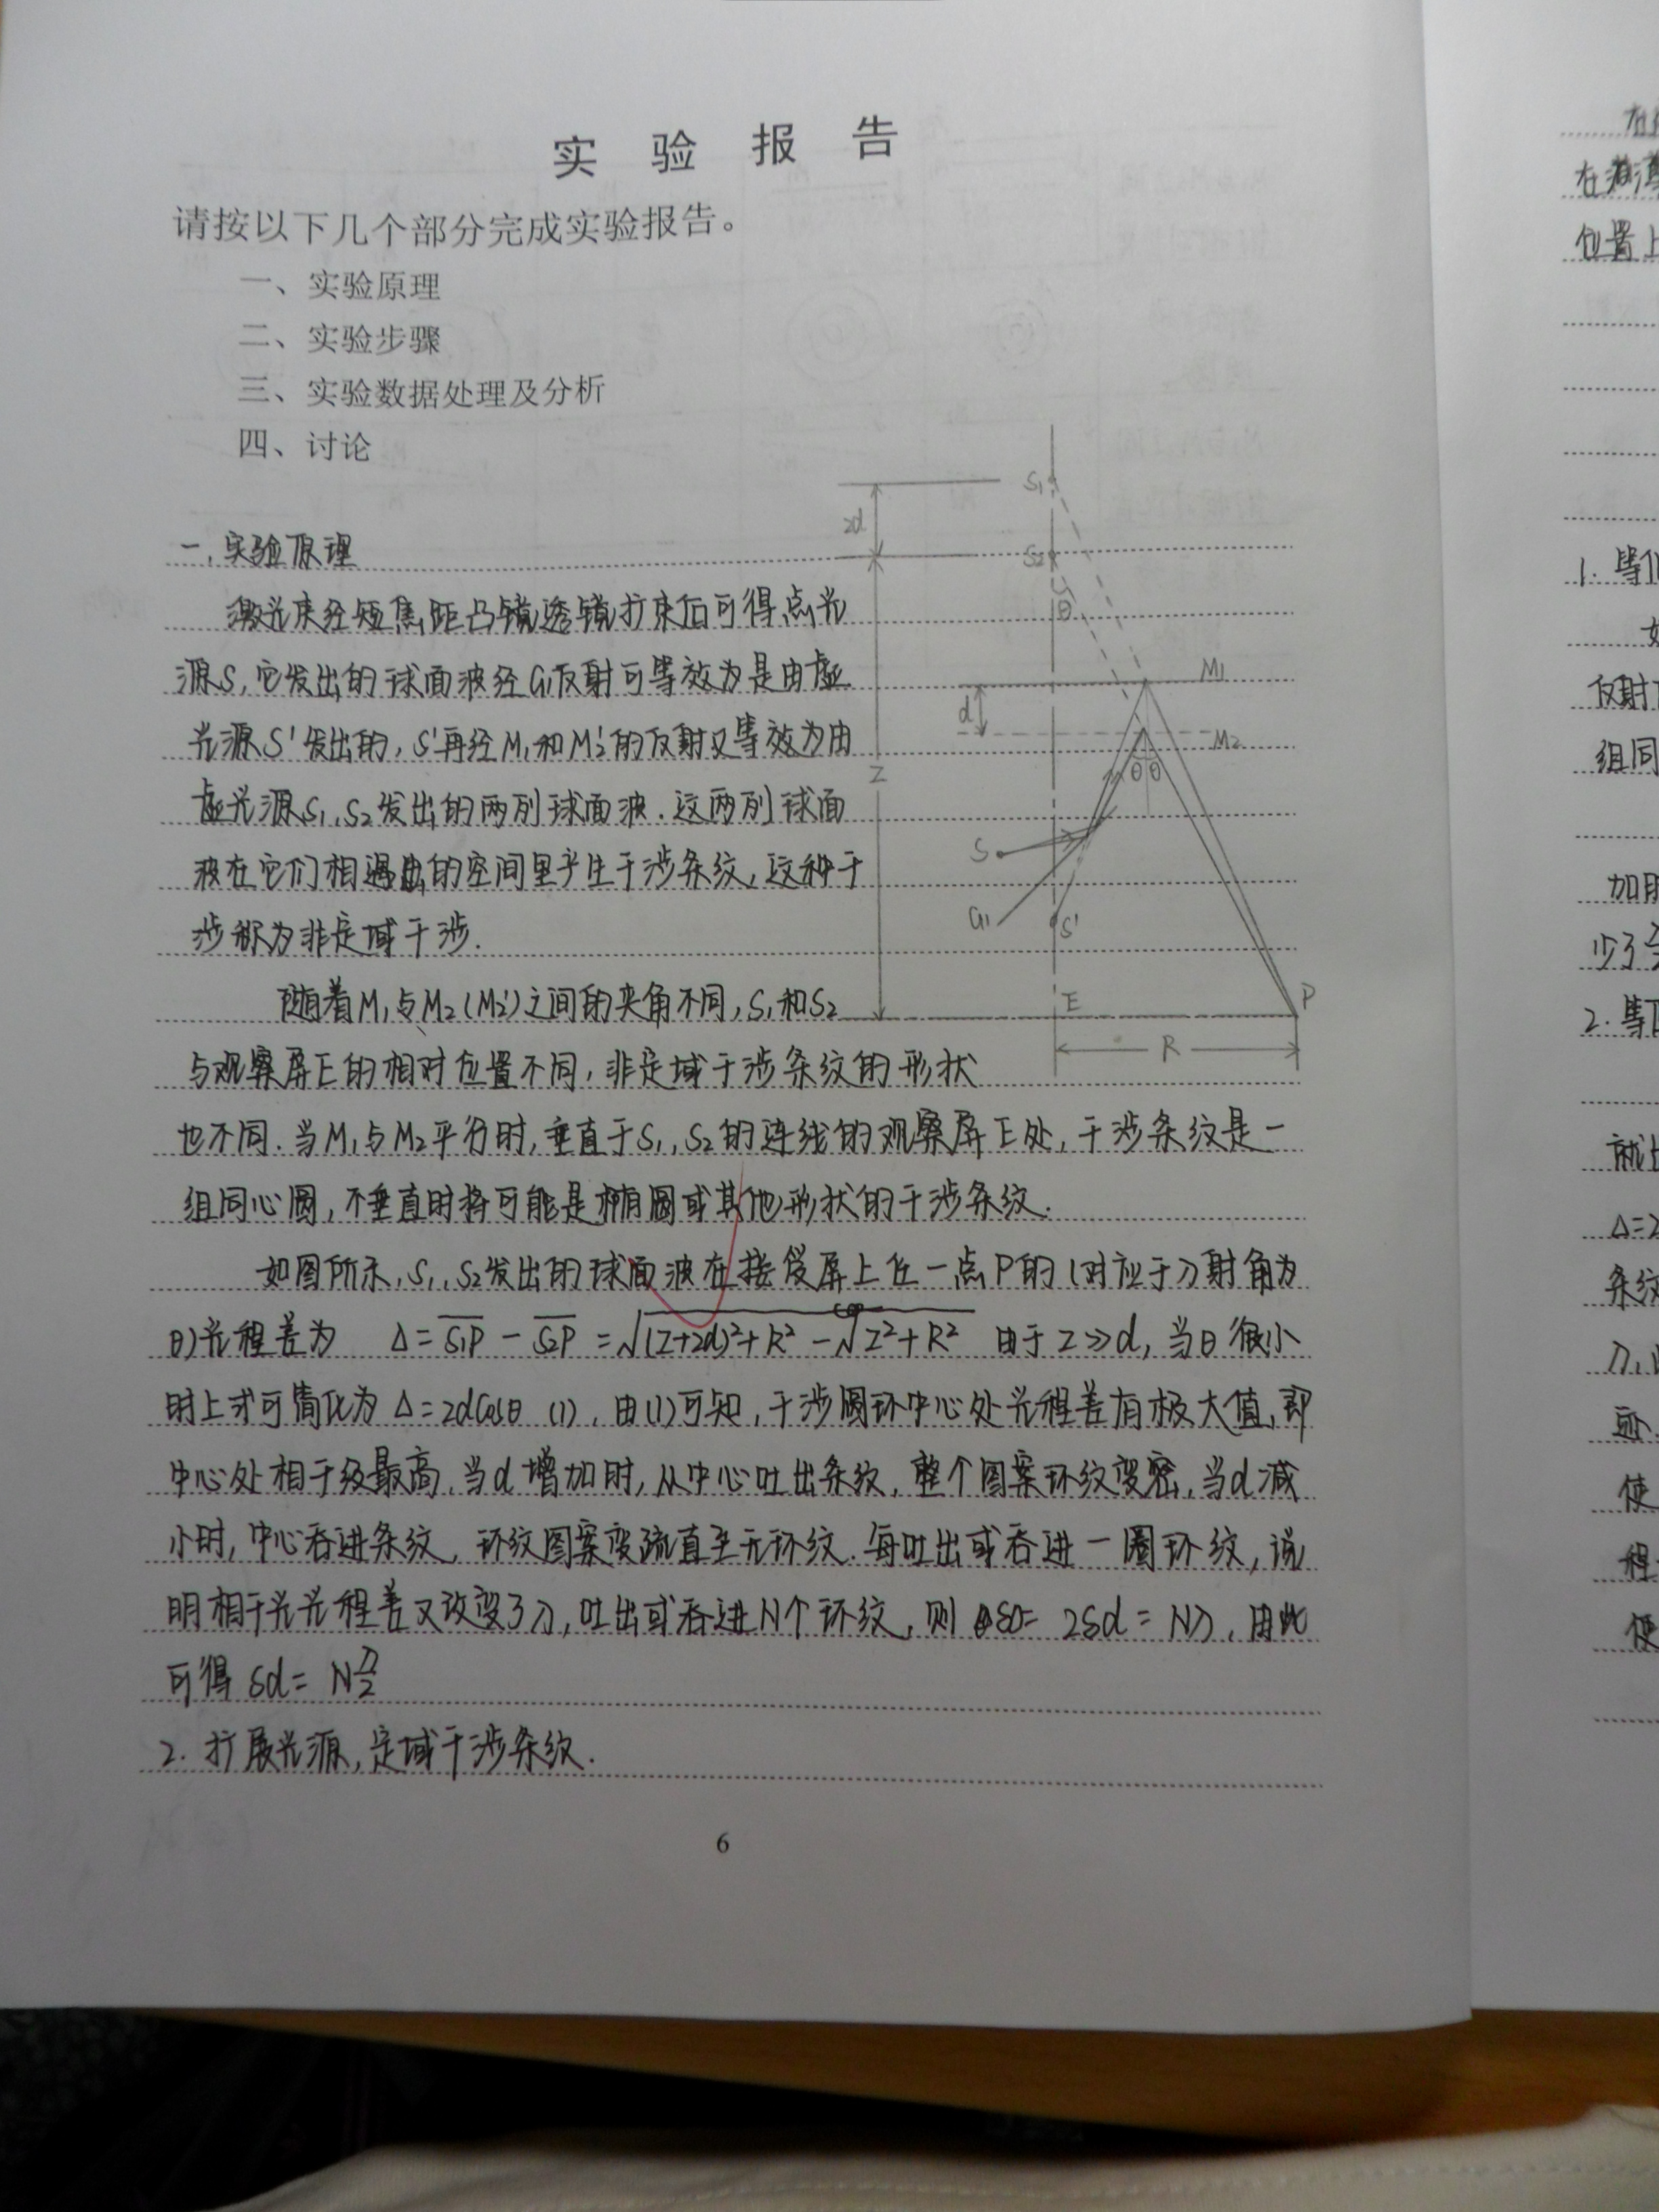 实 验 报 告
请按以下几个部分完成实验报告。
一、实验原理
二、实验步骤
三、实验数据处理及分析
四、讨论
一. 实验原理
激光束经短焦距凸镜透镜扩束后可得点光
源S, 它发出的球面波经G1反射可等效为是由虚
光源S'发出的, S'再经M1和M2'的反射又等效为由
虚光源S1、S2发出的两列球面波. 这两列球面
波在它们相遇的空间里产生干涉条纹, 这种干
涉称为非定域干涉.
随着M1与M2(M2')之间的夹角不同, S1和S2
与观察屏E的相对位置不同, 非定域干涉条纹的形状
也不同. 当M1与M2平行时, 垂直于S1、S2的连线的观察屏E处, 干涉条纹是一
组同心圆, 不垂直时将可能是椭圆或其他形状的干涉条纹.
如图所示, S1、S2发出的球面波在接受屏上任一点P的(对应于入射角为
θ)光程差为 Δ=S1P - S2P = √(Z+2d)²+R² - √Z²+R² 由于Z≫d, 当θ很小
时上式可简化为 Δ=2dcosθ (1), 由(1)可知, 干涉圆环中心处光程差有极大值, 即
中心处相干级最高, 当d增加时, 从中心吐出条纹, 整个图案环纹变密, 当d减
小时, 中心吞进条纹, 环纹图案变疏直至无环纹. 每吐出或吞进一圈环纹, 说
明相干光光程差又改变了λ, 吐出或吞进N个环纹, 则 δΔ= 2δd = Nλ, 由此
可得 δd= Nλ/2
2. 扩展光源, 定域干涉条纹.
6
2d
S1
S2
θ
M1
d
M2
θ θ
Z
S
G1
S'
E
P
R
在
位置上
1. 等
反射
组同
2. 等
就
Δ=2
条纹
使
程
使